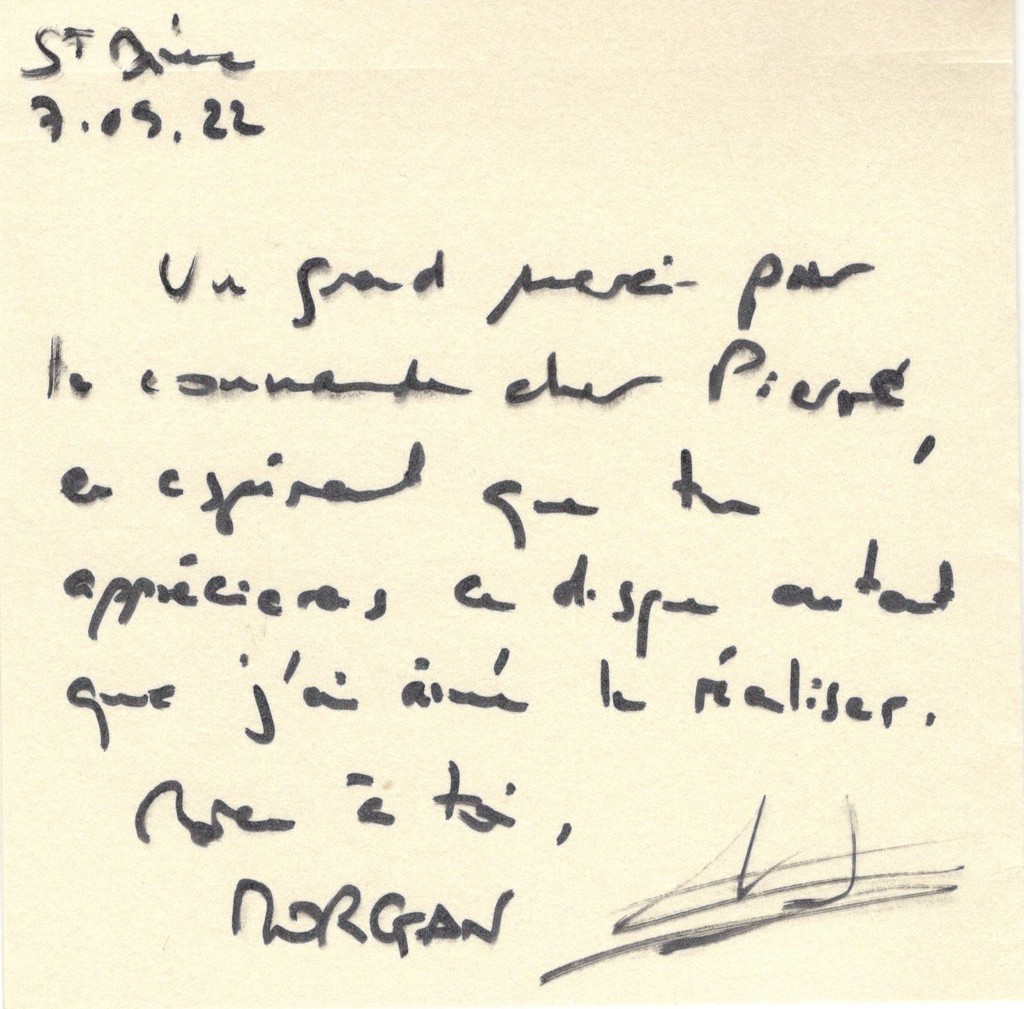 St
7.09.22
Un grand merci pour
la commande cher Pierre,
en espérant que tu
apprécieras ce disque autant
que j'ai aimé le réaliser.
Bien à toi,
MORGAN